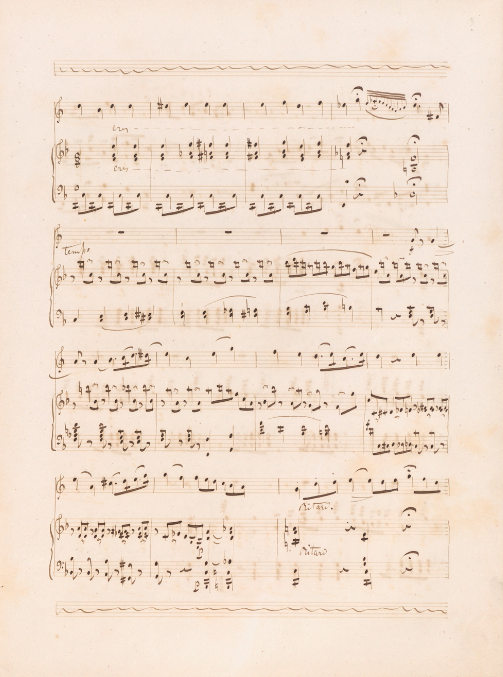 cres
cres
tempo
p
Ritard.
Ritard
p